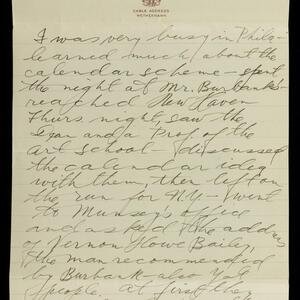 CABLE ADDRESS
NETHERMAWR
I was very busy in Phila-
learned much about the
calendar scheme - spent
the night at Mr. Burbank's -
reached New Haven
Thurs night, saw the
Dean and a Prof. of the
art school - discussed
the calendar idea
with them, then left on
the run for N.Y. - went
to Munsey's office
and asked the address
of Vernon Howe Bailey,
the man recommended
by Burbank - also Yale
people. At first they